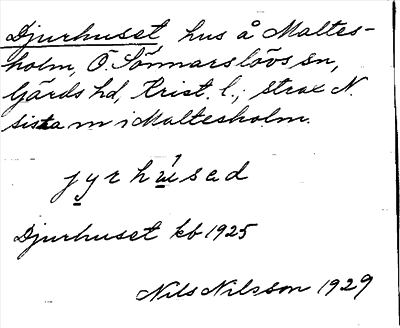 Djurhuset hus å Maltes-
holm, Ö. Sönnarslövs sn,
Gärds hd, Krist. l.; strax N.
sista m i Maltesholm.
jyrhusad
Djurhuset kb 1925
Nils Nilsson 1929